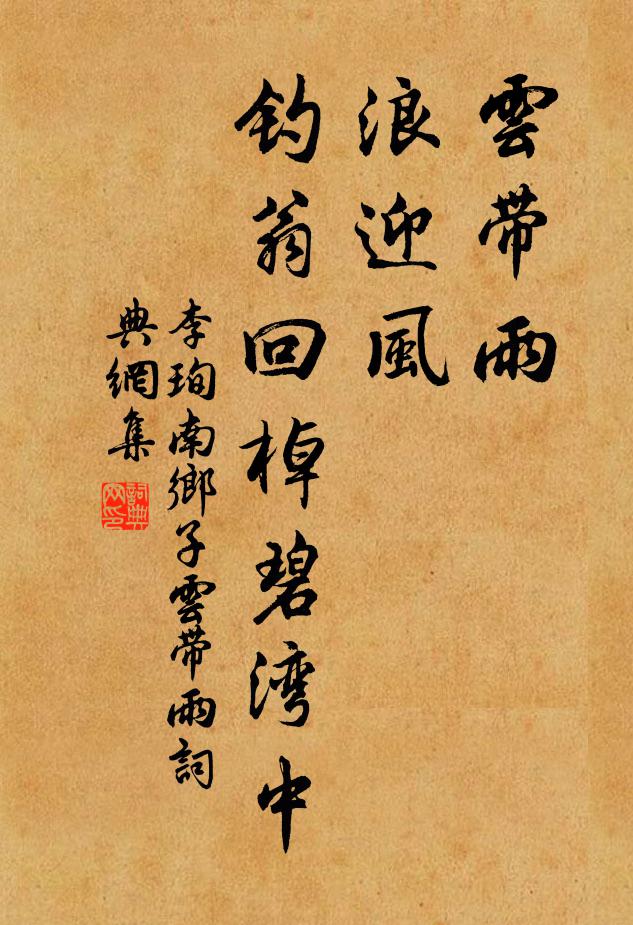 雲帶雨
浪迎風
釣翁回棹碧湾中
李珣南鄉子雲帶雨詞
典網集
詞典网印